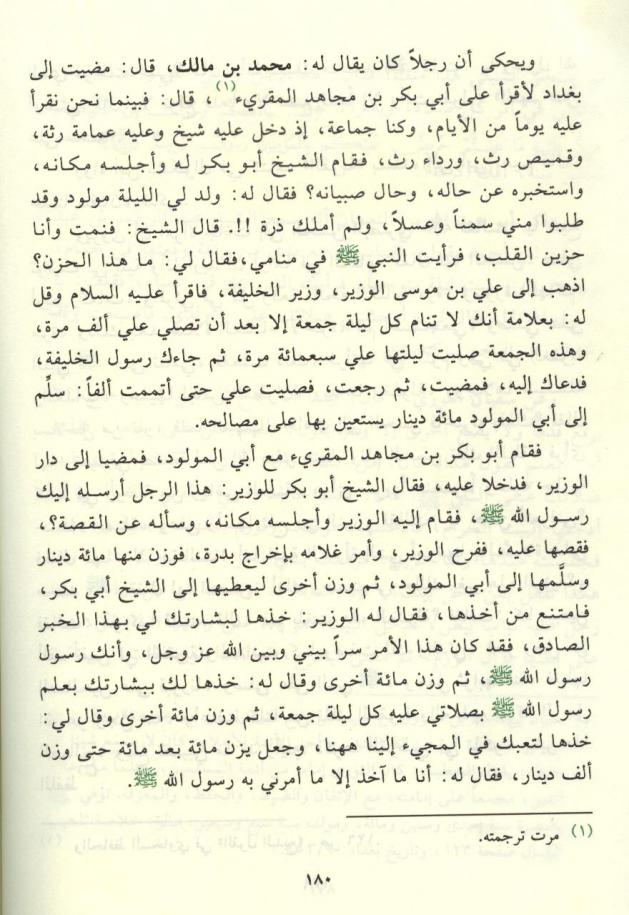 ويحكى أن رجلاً كان يقال له: محمد بن مالك، قال: مضيت إلى
بغداد لأقرأ على أبي بكر بن مجاهد المقريء(١)، قال: فبينما نحن نقرأ
عليه يوماً من الأيام، وكنا جماعة، إذ دخل عليه شيخ وعليه عمامة رثة،
وقميص رث، ورداء رث، فقام الشيخ أبو بكر له وأجلسه مكانه،
واستخبره عن حاله، وحال صبيانه؟ فقال له: ولد لي الليلة مولود وقد
طلبوا مني سمناً وعسلاً، ولم أملك ذرة !!. قال الشيخ: فنمت وأنا
حزين القلب، فرأيت النبي ﷺ في منامي،فقال لي: ما هذا الحزن؟
اذهب إلى علي بن موسى الوزير، وزير الخليفة، فاقرأ عليه السلام وقل
له: بعلامة أنك لا تنام كل ليلة جمعة إلا بعد أن تصلي علي ألف مرة،
وهذه الجمعة صليت ليلتها علي سبعمائة مرة، ثم جاءك رسول الخليفة،
فدعاك إليه، فمضيت، ثم رجعت، فصليت علي حتى أتممت ألفاً: سلِّم
إلى أبي المولود مائة دينار يستعين بها على مصالحه.
فقام أبو بكر بن مجاهد المقريء مع أبي المولود، فمضيا إلى دار
الوزير، فدخلا عليه، فقال الشيخ أبو بكر للوزير: هذا الرجل أرسله إليك
رسول الله ﷺ، فقام إليه الوزير وأجلسه مكانه، وسأله عن القصة؟،
فقصها عليه، ففرح الوزير، وأمر غلامه بإخراج بدرة، فوزن منها مائة دينار
وسلَّمها إلى أبي المولود، ثم وزن أخرى ليعطيها إلى الشيخ أبي بكر،
فامتنع من أخذها، فقال له الوزير: خذها لبشارتك لي بهذا الخبر
الصادق، فقد كان هذا الأمر سراً بيني وبين الله عز وجل، وأنك رسول
رسول الله ﷺ، ثم وزن مائة أخرى وقال له: خذها لك ببشارتك بعلم
رسول الله ﷺ بصلاتي عليه كل ليلة جمعة، ثم وزن مائة أخرى وقال لي:
خذها لتعبك في المجيء إلينا ههنا، وجعل يزن مائة بعد مائة حتى وزن
ألف دينار، فقال له: أنا ما آخذ إلا ما أمرني به رسول الله ﷺ.
(١) مرت ترجمته.
١٨٠